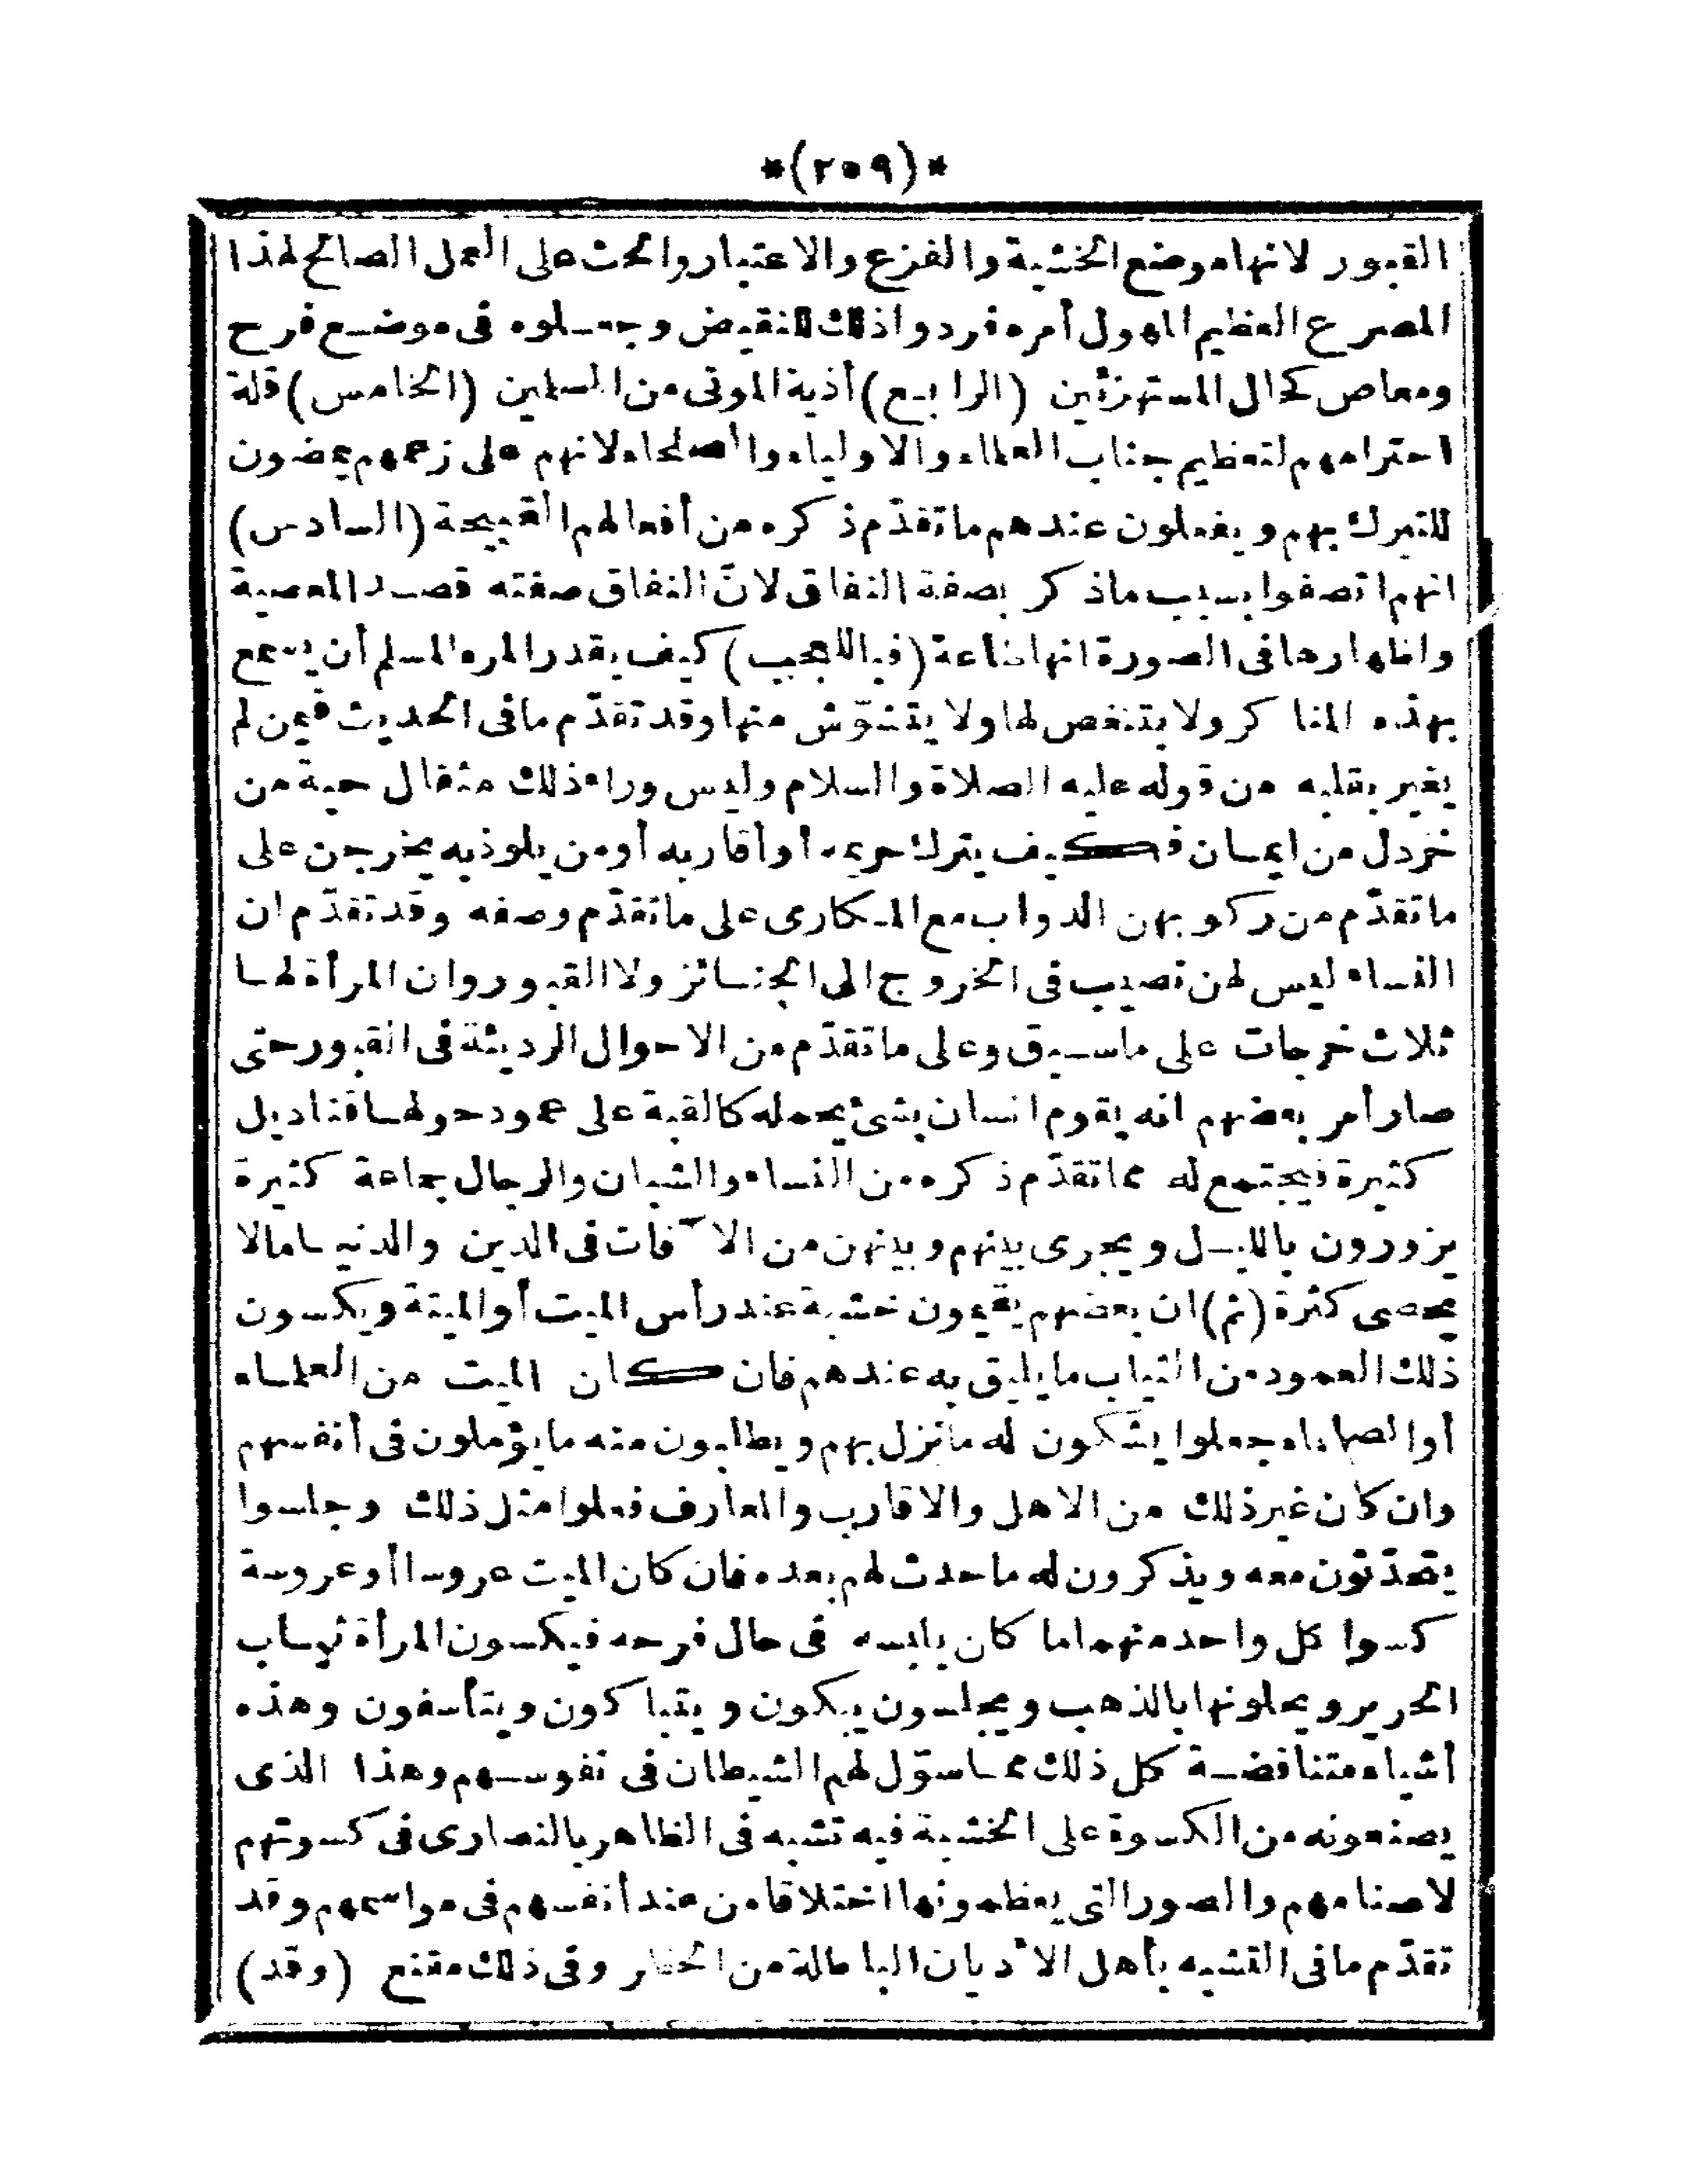 *(٢٥٩)*
القبور لانها موضع الخشية والفزع والاعتبار والحث على العمل الصالح لهذا
المصرع العظيم المهول أمره فردوا ذلك للنقيض وجعلوه فى موضع فرح
ومعاص كحال المستهزئين (الرابع) أذية الموتى من المسلمين (الخامس) قلة
احترامهم لتعظيم جناب العلماء والاولياء والصلحاء لانهم على زعمهم يمضون
للتبرك بهم ويفعلون عندهم ما تقدّم ذكره من أفعالهم القبيحة (السادس)
انهم اتصفوا بسبب ماذكر بصفة النفاق لانّ النفاق صفته قصد المعصية
واظهارها فى الصورة انها طاعة (فيا للعجب) كيف يقدر المرء المسلم أن يسمع
بهذه المناكر ولا يتنغص لها ولا يتشوّش منها وقد تقدّم مافى الحديث فيمن لم
يغير بقلبه من قوله عليه الصلاة والسلام وليس وراء ذلك مثقال حبة من
خردل من ايمان فكيف يترك حريمه أو أقاربه أو من يلوذ به يخرجن على
ما تقدّم من ركوبهن الدواب مع المكارى على ما تقدّم وصفه وقد تقدّم ان
النساء ليس لهن نصيب فى الخروج الى الجنائز ولا القبور وان المرأة لها
ثلاث خرجات على ماسبق وعلى ما تقدّم من الاحوال الرديئة فى القبور حتى
صار أمر بعضهم انه يقوم انسان بشئ يحمله كالقبة على عمود حولها قناديل
كثيرة فيجتمع له مما تقدّم ذكره من النساء والشبان والرجال جماعة كثيرة
يزورون بالليل ويجرى بينهم وبينهن من الآفات فى الدين والدنيا مالا
يحصى كثرة (ثم) ان بعضهم يقيمون خشبة عند رأس الميت أو الميتة ويكسون
ذلك العمود من الثياب ما يليق به عندهم فان كان الميت من العلماء
أو الصلحاء جعلوا يشكون له ما نزل بهم ويطلبون منه ما يؤملون فى أنفسهم
وان كان غير ذلك من الاهل والاقارب والمعارف فعلوا مثل ذلك وجلسوا
يتحدّثون معه ويذكرون له ما حدث لهم بعده فان كان الميت عروسا أو عروسة
كسوا كل واحد منهما ما كان يلبسه فى حال فرحه فيكسون المرأة ثياب
الحرير ويحلونها بالذهب ويجلسون يبكون ويتباكون ويتأسفون وهذه
أشياء متناقضة كل ذلك مما سوّل لهم الشيطان فى نفوسهم وهذا الذى
يصنعونه من الكسوة على الخشبة فيه تشبه فى الظاهر بالنصارى فى كسوتهم
لاصنامهم والصور التى يعظمونها اختلاقا من عند أنفسهم فى مواسمهم وقد
تقدّم مافى التشبه بأهل الاديان الباطلة من الخطر وفى ذلك مقنع (وقد)